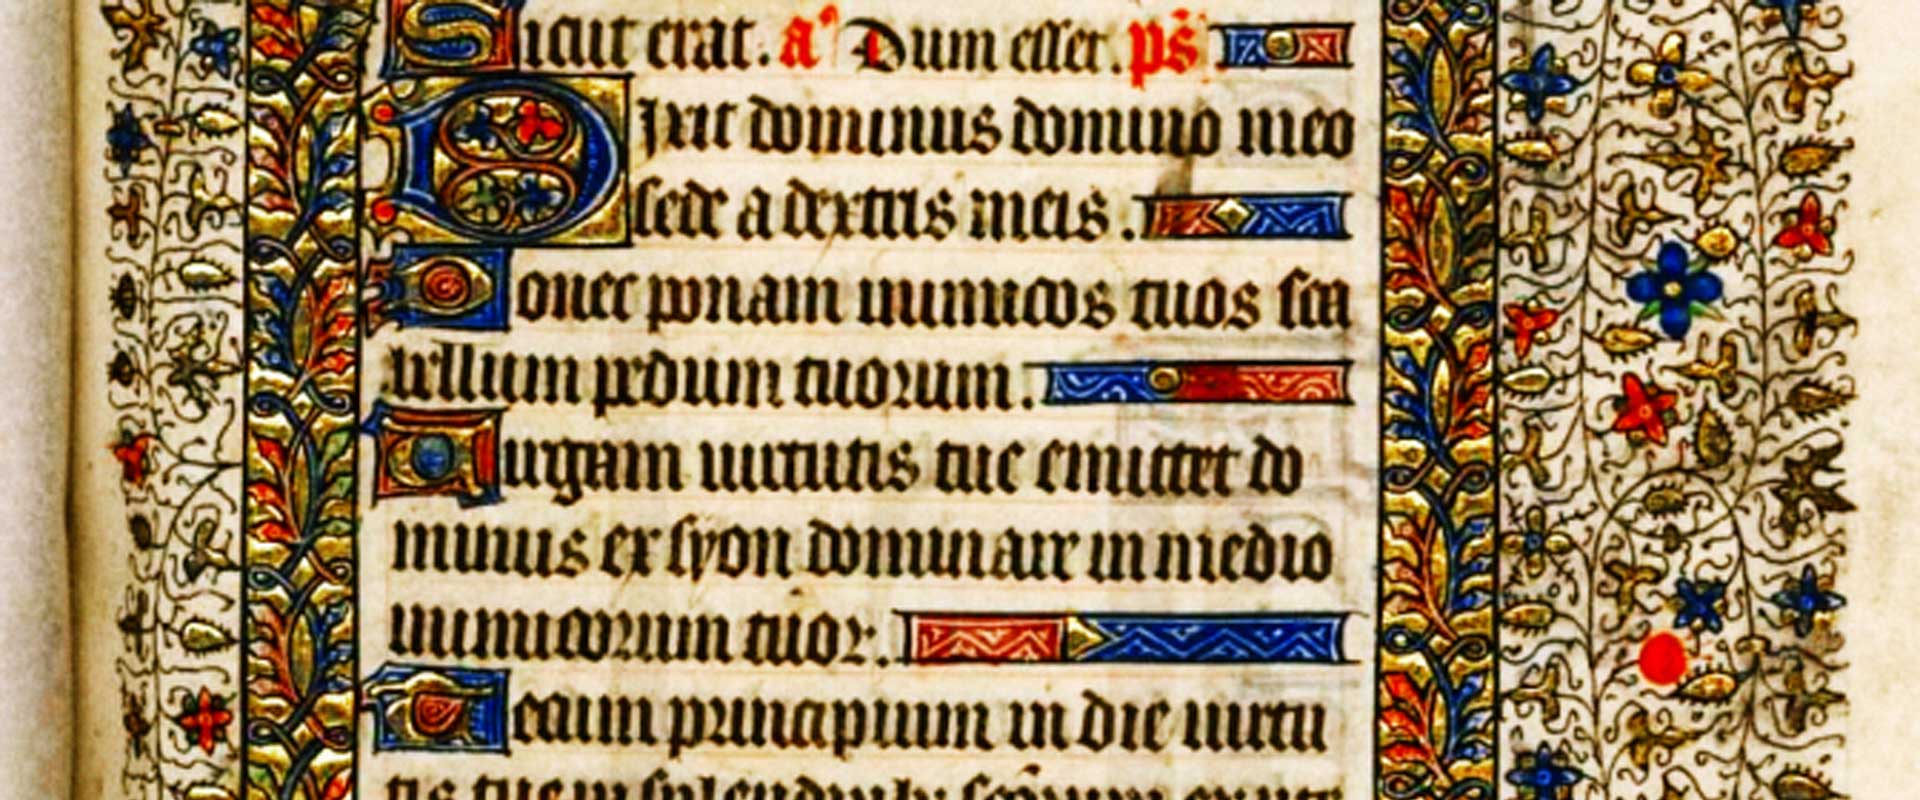 Sicut erat. a͛ Dum esset. ps̄
Dixit dominus domino meo
sede a dextris meis.
Donec ponam inimicos tuos sca
bellum pedum tuorum.
Uirgam uirtutis tue emittet do
minus ex syon dominare in medio
inimicorum tuoꝝ.
Tecum principium in die uirtu
tis tue in splendoribꝫ